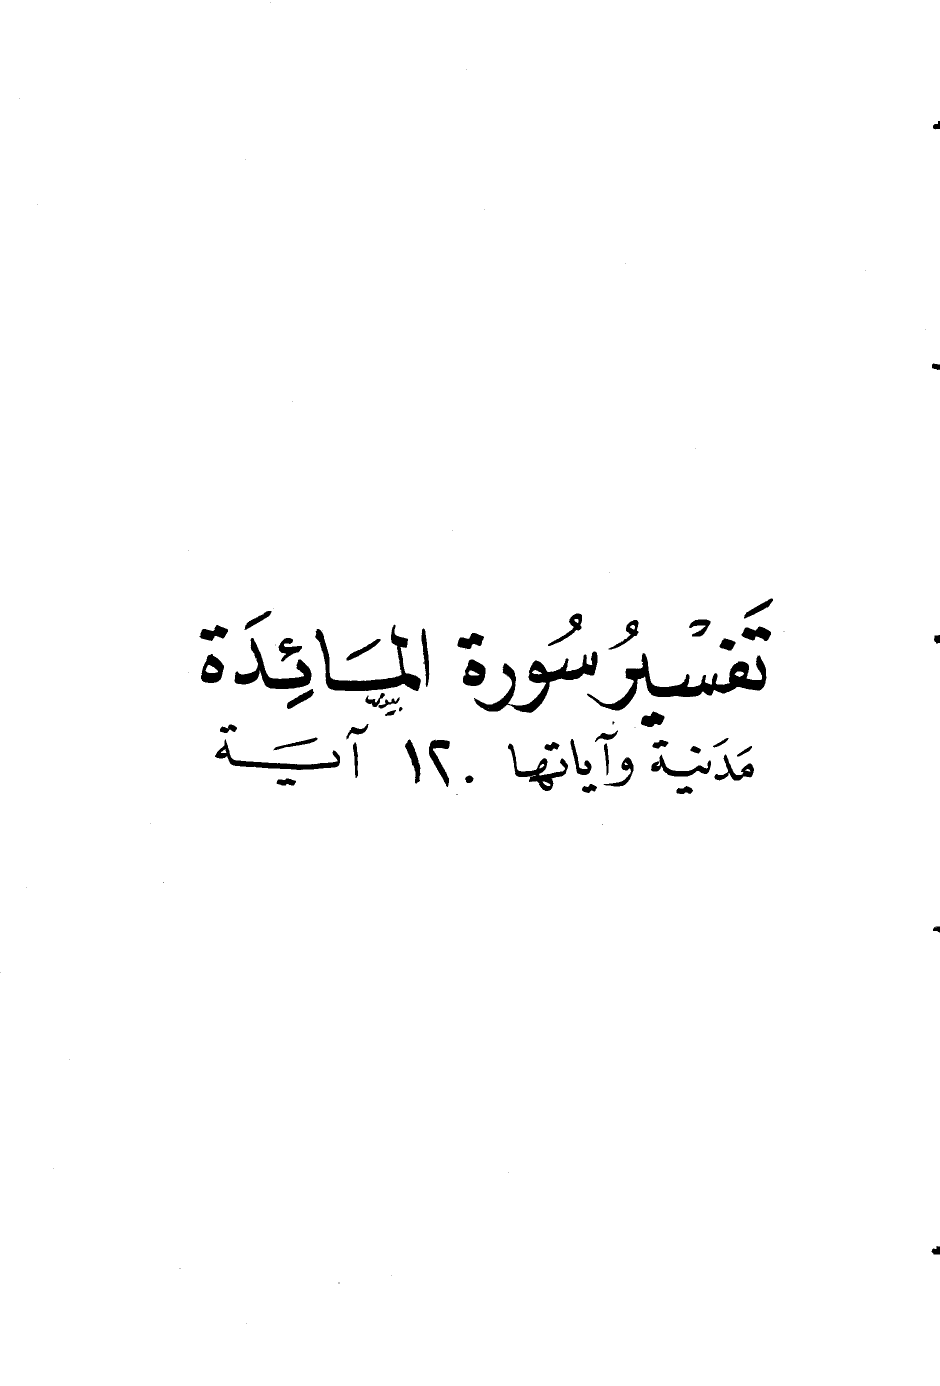 تَفسْيرُ سُورة المَائِدَة
مَدَنية وآياتها ١٢٠ آية